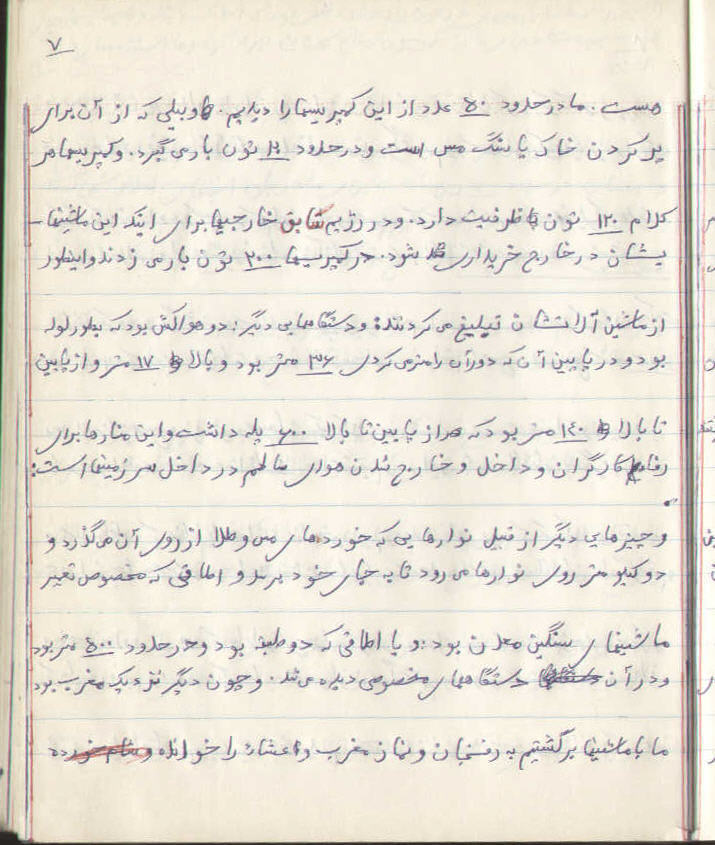 ۷
هست. ما در حدود ۵۰ عدد از این کمپریسیها را دیدیم. و بیلی که از آن برای
پر کردن خاک یا سنگ مس است و در حدود ۱۲ تون بار می گیرد. و کمپرسیها هر
کدام ۱۲۰ تون ظرفیت دارد. و در رژیم سابق خارجیها برای اینکه این ماشینها-
یشان در خارج خریداری شود. در کمپرسیها ۲۰۰ تون بار می زدند و اینطور
از ماشین آلاتشان تبلیغ می کردند؛ و دستگاههایی دیگر: دو هواکش بود که بطور لوله
بود و در پایین آن که دور آن را متر می کردی ۳۶ متر بود و بالا ۱۷ متر و از پایین
تا بالا ۱۴۰ متر بود که هر از پایین تا بالا ۷۰۰ پله داشت و این منارها برای
رفاه کارگران و داخل و خارج شدن هوای سالم در داخل سرزمینها است:
و چیزهایی دیگر از قبیل نوارهایی که خورده های مس و طلا از روی آن می گذرد و
دو کیلو متر روی نوارها می رود تا به جای خود برسد و اطاقی که مخصوص تعمیر
ماشینهای سنگین معدن بود: و یا اطاقی که دو طبقه بود و در حدود ۵۰۰ متر بود
و در آن دستگاههای مخصوصی دیده می شد. و چون دیگر نزدیک مغرب بود
ما با ماشینها برگشتیم به رفسنجان و نماز مغرب و اعشاء را خوانده و شام خورده